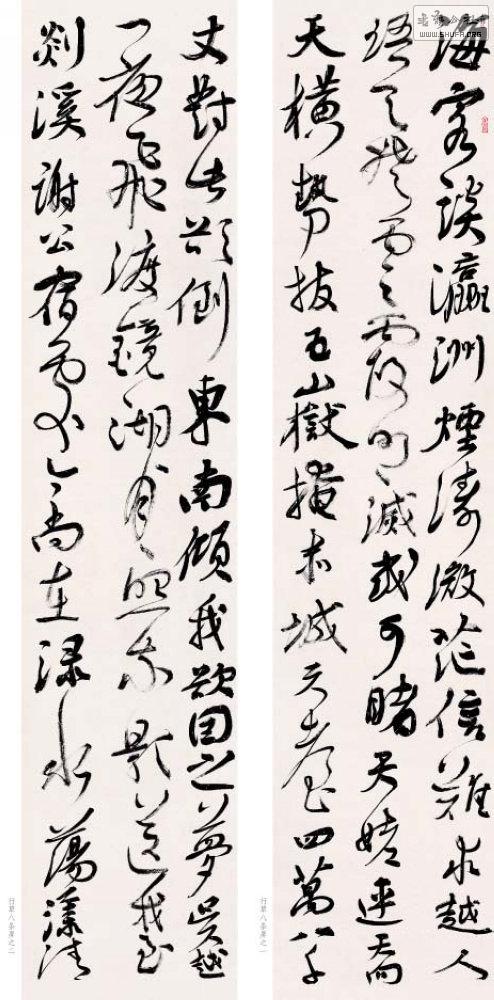 海客談瀛洲煙濤微茫信難求越人
語天姥雲霞明滅或可睹天姥連天向
天橫勢拔五嶽掩赤城天臺四萬八千
丈對此欲倒東南傾我欲因之夢吳越
一夜飛渡鏡湖月〻照我影送我至
剡溪謝公宿處今尚在淥水蕩漾清
行草八条屏之一
行草八条屏之二
WWW.SHUFA.ORG